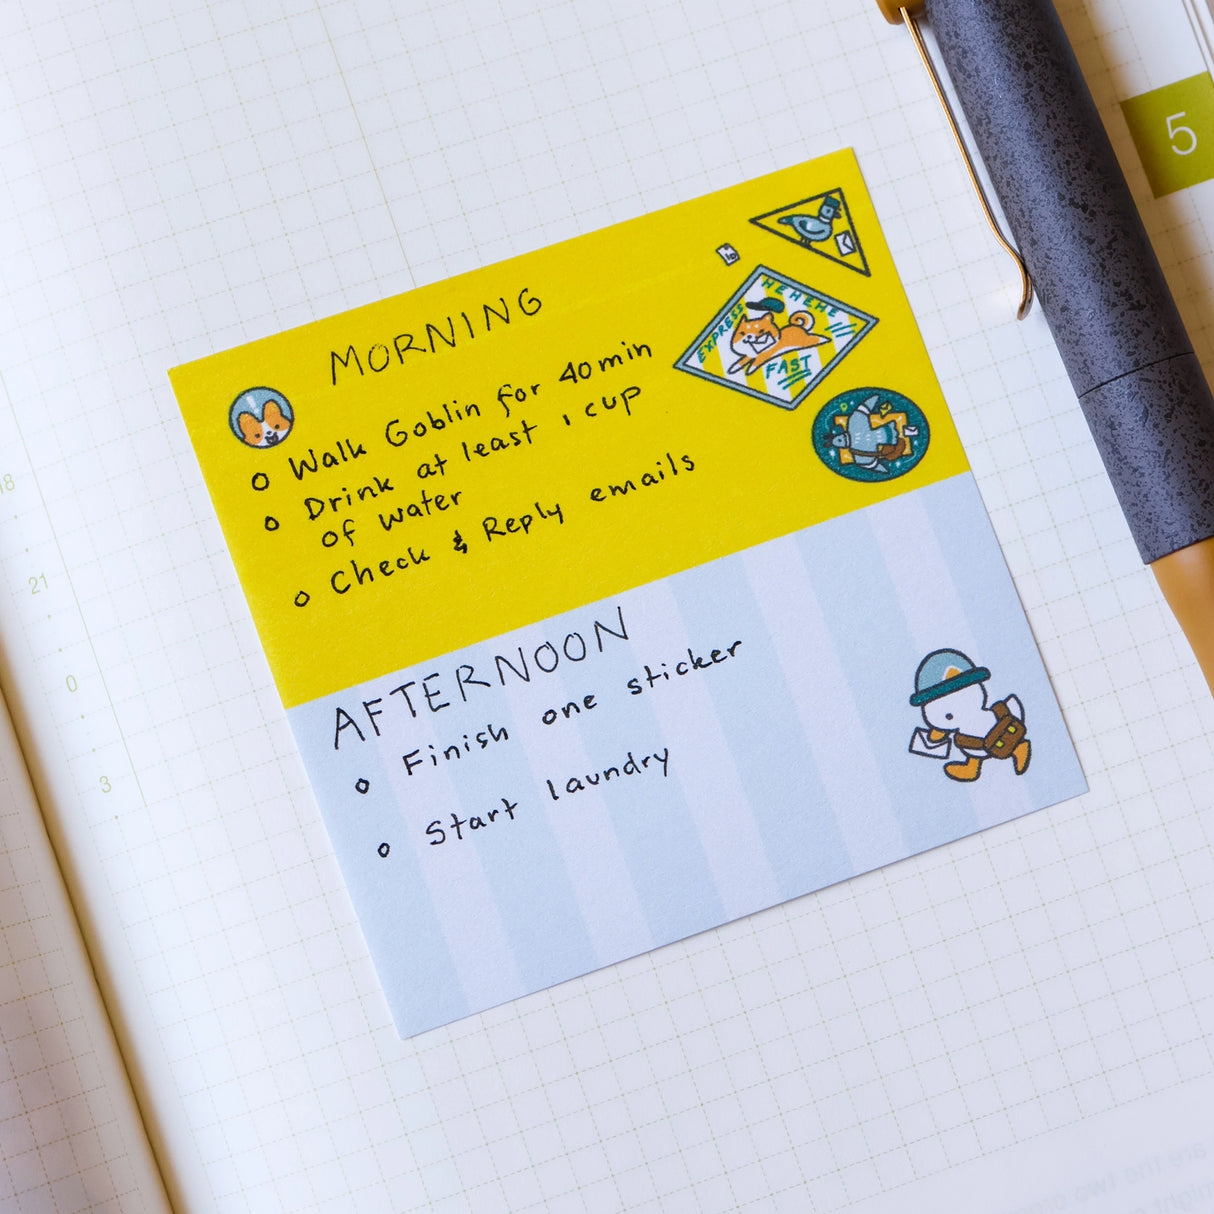 5
MORNING
HEHEHE
EXPRESS
FAST
o Walk Goblin for 40 min
o Drink at least 1 cup
of water
o Check & Reply emails
AFTERNOON
o Finish one sticker
o Start laundry
18
21
0
3